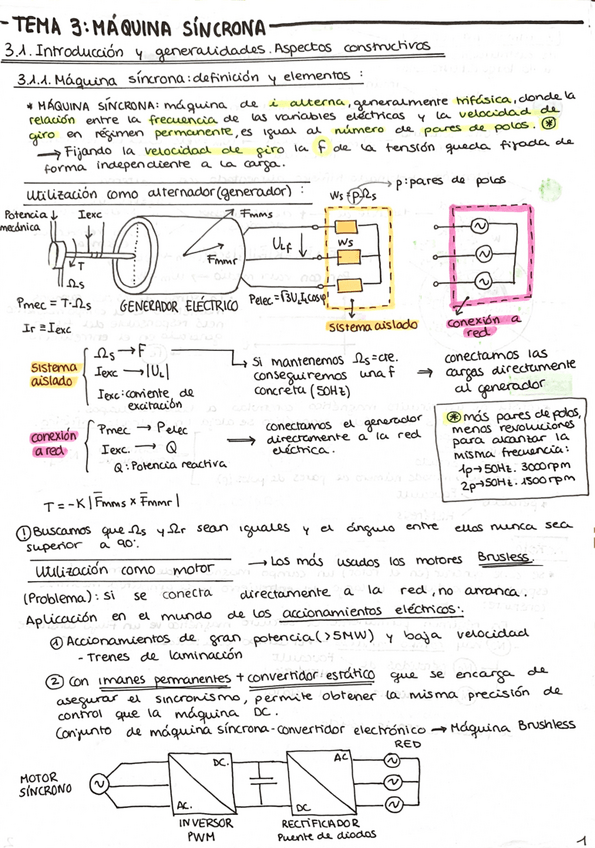 TEMA 3: MÁQUINA SÍNCRONA
3.1. Introducción y generalidades. Aspectos constructivos
3.1.1. Máquina síncrona: definición y elementos :
* MÁQUINA SÍNCRONA: máquina de i alterna, generalmente trifásica, donde la
relación entre la frecuencia de las variables eléctricas y la velocidad de
giro en régimen permanente, es igual al número de pares de polos. *
→ Fijando la velocidad de giro la f de la tensión queda fijada de
forma independiente a la carga.
Utilización como alternador (generador) :
Ws = pΩs
p: pares de polos
Potencia mecánica
Iexc
T
Ωs
Fmms
Fmmr
ULf
Ws
Pmec = T·Ωs
GENERADOR ELÉCTRICO
Pelec = √3 UL IL cosφ
Ir ≡ Iexc
sistema aislado
conexión a red
sistema aislado
Ωs → F
Iexc → |UL|
Iexc: corriente de excitación
→ Si mantenemos Ωs = cte.
conseguiremos una f
concreta (50Hz)
→ conectamos las
cargas directamente
al generador
conexión a red
Pmec → Pelec
Iexc. → Q
Q: Potencia reactiva
→ conectamos el generador
directamente a la red
eléctrica.
* más pares de polos,
menos revoluciones
para alcanzar la
misma frecuencia:
1p → 50Hz. 3000rpm
2p → 50Hz. 1500rpm
T = -K |F̅mms x F̅mmr|
! Buscamos que Ωs y Ωr sean iguales y el ángulo entre ellos nunca sea
superior a 90º.
Utilización como motor → Los más usados los motores Brusless.
(Problema): si se conecta directamente a la red, no arranca.
Aplicación en el mundo de los accionamientos eléctricos:
1 Accionamientos de gran potencia (>5MW) y baja velocidad
- Trenes de laminación
2 Con imanes permanentes + convertidor estático que se encarga de
asegurar el sincronismo, permite obtener la misma precisión de
control que la máquina DC.
Conjunto de máquina síncrona-convertidor electrónico → Máquina Brushless
MOTOR SÍNCRONO
DC.
AC.
AC
DC
RED
INVERSOR PWM
RECTIFICADOR
Puente de diodos
1